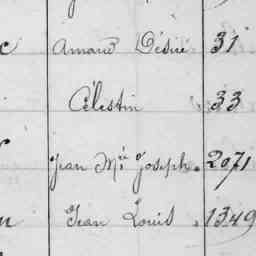 Amand Désiré 31
Célestin 33
Jean Mie Joseph. 2071
Jean Louis . 1349